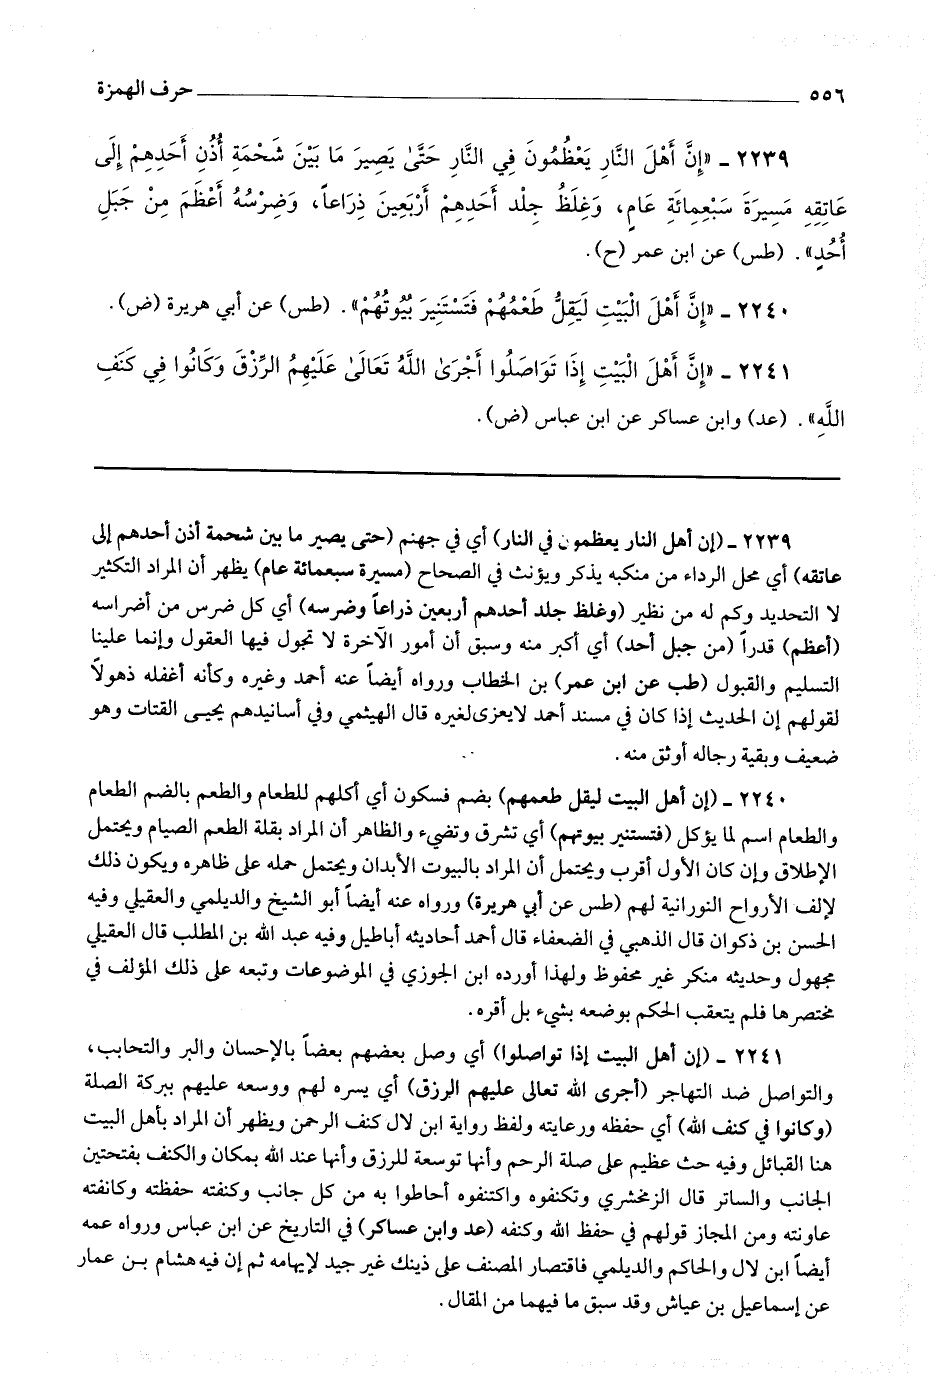 ٥٥٦ حرف الهمزة
٢٢٣٩ ـ «إِنَّ أَهْلَ النَّارِ يَعْظُمُونَ فِي النَّارِ حَتَّىٰ يَصِيرَ مَا بَيْنَ شَحْمَةِ أُذُنِ أَحَدِهِمْ إِلَى
عَاتِقِهِ مَسِيرَةَ سَبْعِمِائَةِ عَامٍ، وَغِلَظُ جِلْدِ أَحَدِهِمْ أَرْبَعِينَ ذِرَاعاً، وَضِرْسُهُ أَعْظَمَ مِنْ جَبَلِ
أُحُدٍ». (طس) عن ابن عمر (ح).
٢٢٤٠ ـ «إِنَّ أَهْلَ الْبَيْتِ لَيَقِلُّ طَعْمُهُمْ فَتَسْتَنِيرَ بُيُوتُهُمْ». (طس) عن أبي هريرة (ض).
٢٢٤١ ـ «إِنَّ أَهْلَ الْبَيْتِ إِذَا تَوَاصَلُوا أَجْرَىٰ اللَّهُ تَعَالَىٰ عَلَيْهِمُ الرِّزْقَ وَكَانُوا فِي كَنَفِ
اللَّهِ». (عد) وابن عساكر عن ابن عباس (ض).
٢٢٣٩ ـ (إن أهل النار يعظمون في النار) أي في جهنم (حتى يصير ما بين شحمة أذن أحدهم إلى
عاتقه) أي محل الرداء من منكبه يذكر ويؤنث في الصحاح (مسيرة سبعمائة عام) يظهر أن المراد التكثير
لا التحديد وكم له من نظير (وغلظ جلد أحدهم أربعين ذراعاً وضرسه) أي كل ضرس من أضراسه
(أعظم) قدراً (من جبل أحد) أي أكبر منه وسبق أن أمور الآخرة لا تجول فيها العقول وإنما علينا
التسليم والقبول (طب عن ابن عمر) بن الخطاب ورواه أيضاً عنه أحمد وغيره وكأنه أغفله ذهولاً
لقولهم إن الحديث إذا كان في مسند أحمد لايعزى لغيره قال الهيثمي وفي أسانيدهم يحيـى القتات وهو
ضعيف وبقية رجاله أوثق منه.
٢٢٤٠ ـ (إن أهل البيت ليقل طعمهم) بضم فسكون أي أكلهم للطعام والطعم بالضم الطعام
والطعام اسم لما يؤكل (فتستنير بيوتهم) أي تشرق وتضيء والظاهر أن المراد بقلة الطعم الصيام ويحتمل
الإطلاق وإن كان الأول أقرب ويحتمل أن المراد بالبيوت الأبدان ويحتمل حمله على ظاهره ويكون ذلك
لإلف الأرواح النورانية لهم (طس عن أبي هريرة) ورواه عنه أيضاً أبو الشيخ والديلمي والعقيلي وفيه
الحسن بن ذكوان قال الذهبي في الضعفاء قال أحمد أحاديثه أباطيل وفيه عبد الله بن المطلب قال العقيلي
مجهول وحديثه منكر غير محفوظ ولهذا أورده ابن الجوزي في الموضوعات وتبعه على ذلك المؤلف في
مختصرها فلم يتعقب الحكم بوضعه بشيء بل أقره.
٢٢٤١ ـ (إن أهل البيت إذا تواصلوا) أي وصل بعضهم بعضاً بالإحسان والبر والتحابب،
والتواصل ضد التهاجر (أجرى الله تعالى عليهم الرزق) أي يسره لهم ووسعه عليهم ببركة الصلة
(وكانوا في كنف الله) أي حفظه ورعايته ولفظ رواية ابن لال كنف الرحمن ويظهر أن المراد بأهل البيت
هنا القبائل وفيه حث عظيم على صلة الرحم وأنها توسعة للرزق وأنها عند الله بمكان والكنف بفتحتين
الجانب والساتر قال الزمخشري وتكنفوه واكتنفوه أحاطوا به من كل جانب وكنفته حفظته وكانفته
عاونته ومن المجاز قولهم في حفظ الله وكنفه (عد وابن عساكر) في التاريخ عن ابن عباس ورواه عمه
أيضاً ابن لال والحاكم والديلمي فاقتصار المصنف على ذينك غير جيد لإيهامه ثم إن فيه هشام بـن عمار
عن إسماعيل بن عياش وقد سبق ما فيهما من المقال.